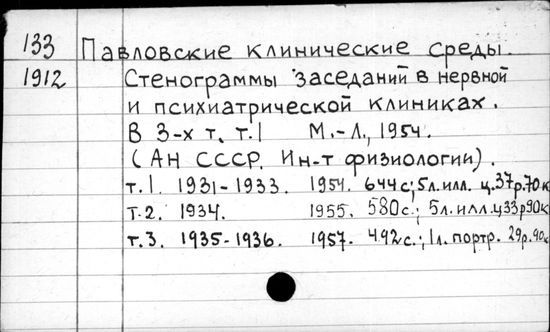 133 Павловские клинические среды.
1912 Стенограммы заседаний в нервной
и психиатрической клиниках.
В 3-х т. т. 1 М.-Л., 1954.
(АН СССР. Ин-т физиологии).
т. 1. 1931-1933. 1954. 644 с; 5 л. илл. ц. 37 р. 70 к
т. 2. 1934. 1955. 580 с.; 5 л. илл. ц 33 р 90 к
т. 3. 1935-1936. 1957. 492 с.; 1 л. портр. 29 р. 90 к